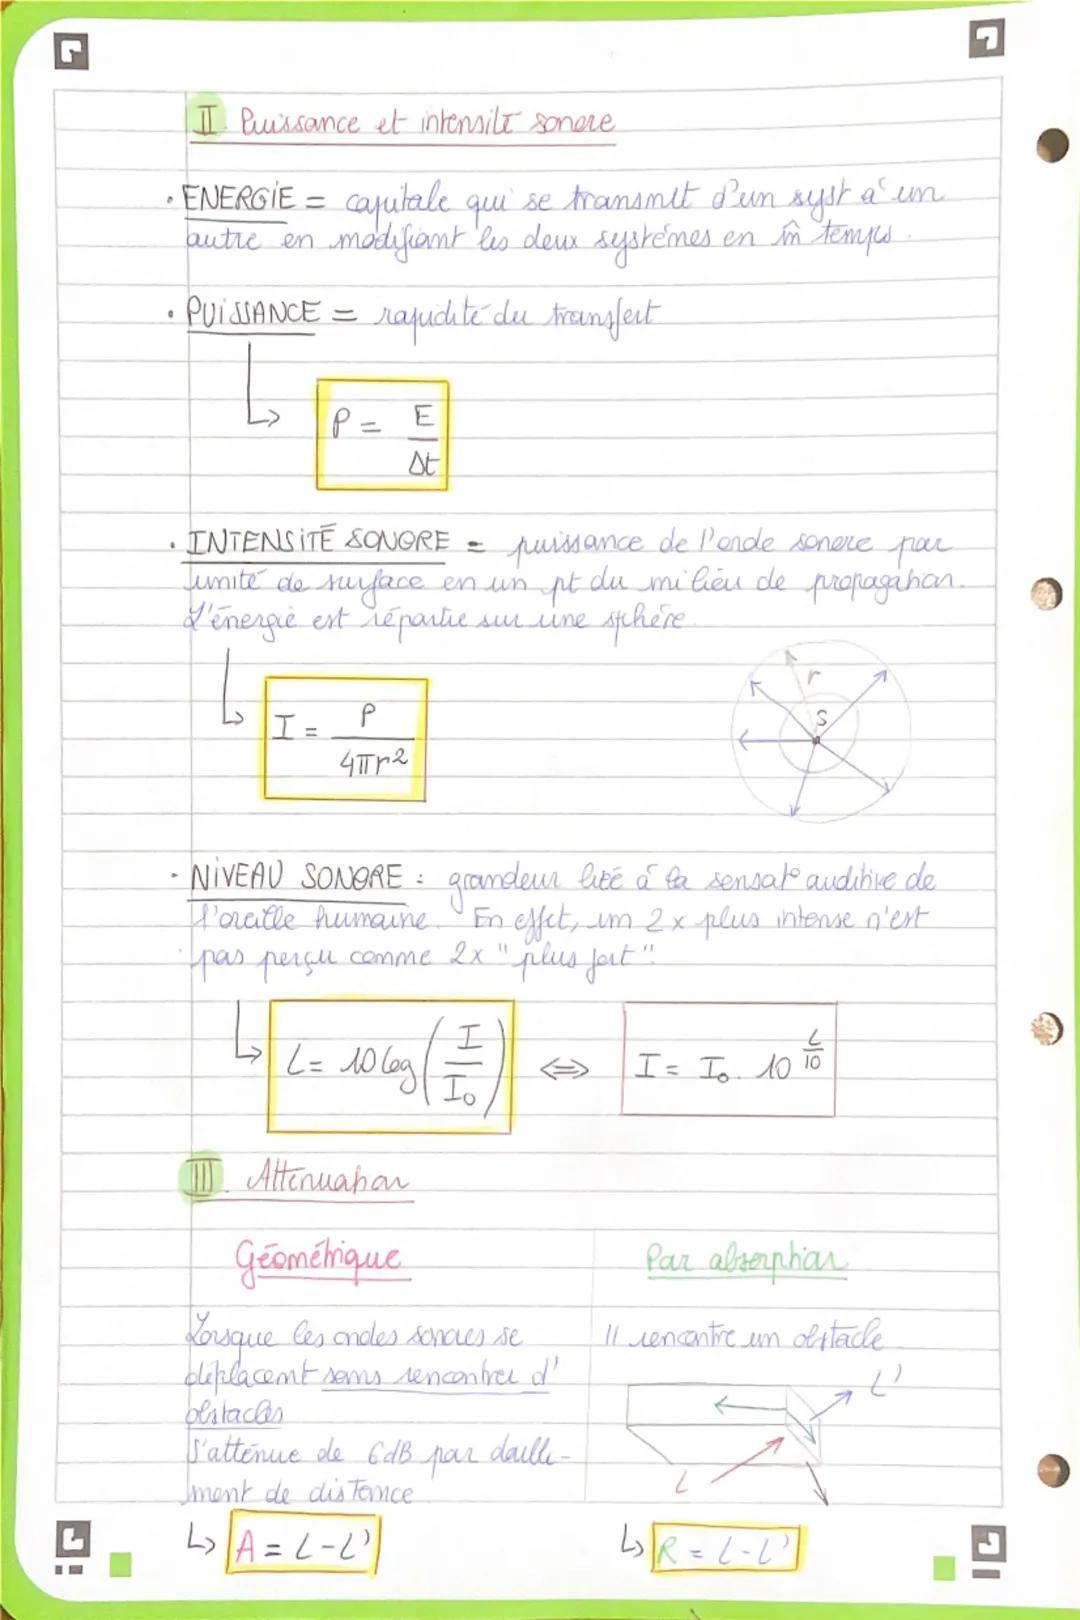 II. Puissance et intensité sonore
• ENERGIE = capitale qui se transmet d'un syst à un
autre en modifiant les deux systèmes en m̂ temps.
• PUISSANCE = rapidité du transfert
P = E / Δt
• INTENSITÉ SONORE = puissance de l'onde sonore par
unité de surface en un pt du milieu de propagation.
L'énergie est répartie sur une sphère.
I = P / 4πr²
r
S
• NIVEAU SONORE : grandeur liée à la sensat° auditive de
l'oreille humaine. En effet, um 2x plus intense n'est
pas perçu comme 2x "plus fort".
L = 10 log (I / I₀) ⇔ I = I₀. 10^(L/10)
III. Attenuation
Géométrique
Par absorption
Lorsque les ondes sonores se
déplacent sans rencontrer d'
obstacles
S'atténue de 6dB par double-
ment de distance
↳ A = L - L'
// rencontre un obstacle
L'
L
↳ R = L - L'